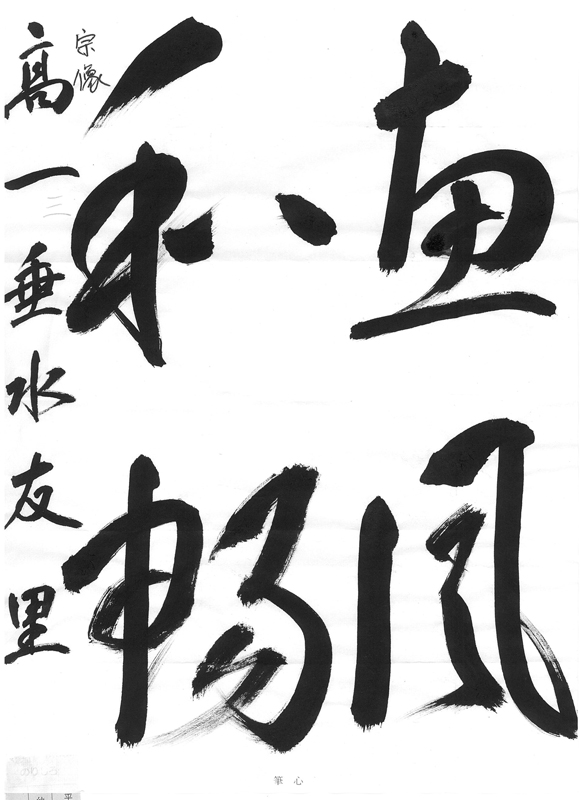 恵風
和暢
宗像
高一 垂水友里
筆心